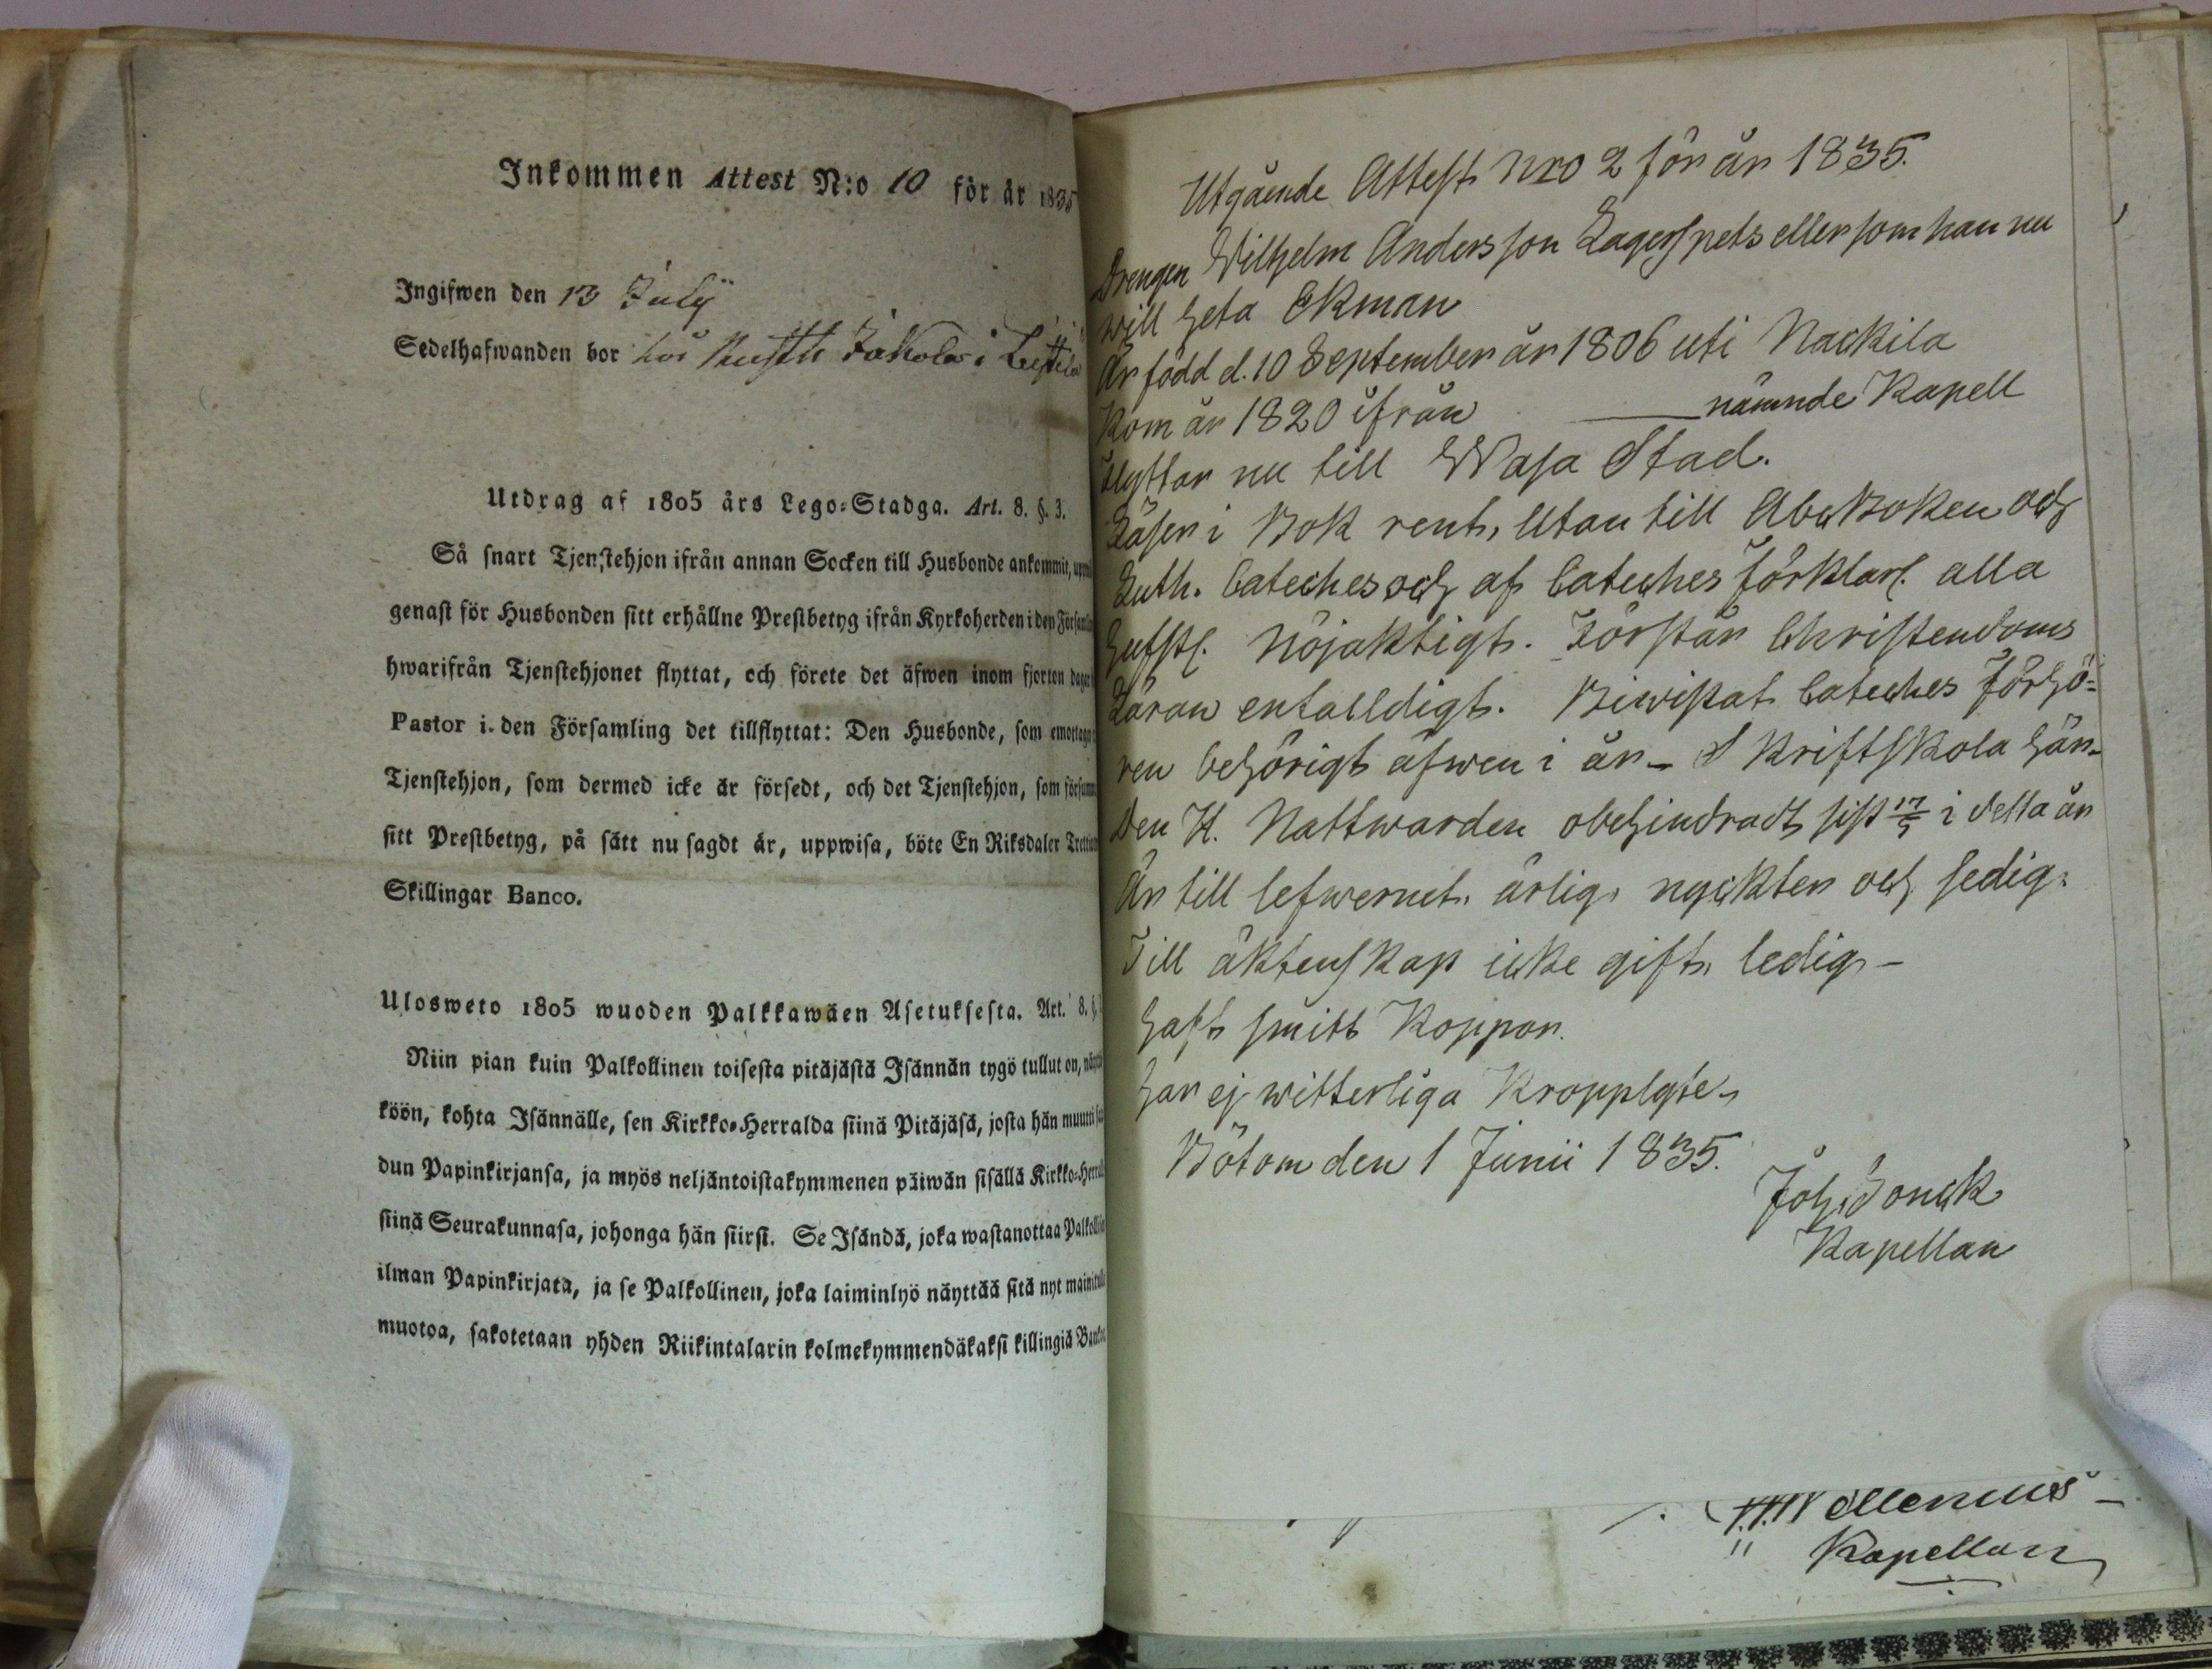 Inkommen Attest N:o 10 för år 1835
Ingifwen den 13 Julÿ
Sedelhafwanden bor hos
Utdrag af 1805 års Lego-Stadga. Art. 8. §. 3.
Så snart Tjenstehjon ifrån annan Socken till Husbonde ankommit,
genast för Husbonden sitt erhållne Prestbetyg ifrån Kyrkoherden i den
hwarifrån Tjenstehjonet flyttat, och förete det äfwen inom fjorton
Pastor i den Församling det tillflyttat: Den Husbonde, som
Tjenstehjon, som dermed icke är försedt, och det Tjenstehjon, som
sitt Prestbetyg, på sätt nu sagdt är, uppwisa, böte En Riksdaler
Skillingar Banco.
Ulosweto 1805 wuoden Palkkawäen Asetuksesta. Art. 8.
Niin pian kuin Palkollinen toisesta pitäjästä Isännän tygö tullut on,
köön, kohta Isännälle, sen Kirkko-Herralda siinä Pitäjäsä, josta hän muutti
dun Papinkirjansa, ja myös neljäntoistakymmenen päiwän sisällä Kirkko-
siinä Seurakunnasa, johonga hän siirsi. Se Isändä, joka wastanottaa
ilman Papinkirjata, ja se Palkollinen, joka laiminlyö näyttää sitä nyt
muotoa, sakotetaan yhden Riikintalarin kolmekymmendäkaksi killingiä
Utgående Attest Nro 2 för år 1835.
Drengen Wilhelm Andersson Lagerspets eller som han nu
will heta Ekman
Är född d. 10 September år 1806 uti Nackila
Kom år 1820 ifrån nämnde Kapell
Flyttar nu till Wasa Stad.
Läser i Bok rent, Utan till Abc Boken och
Luth. Cateches och af Cateches förklar. alla
Hufst. Nöjaktigt. Förstår Christendoms
Läran enfalldigt. Biwistat Cateches Förhö-
ren behörigt äfwen i år - Skriftskola hän-
Den H. Nattwarden obehindradt sist 17/5 i detta år
Är till lefwernet, ärlig, nyckter och sedig.
Till äktenskap icke gift, ledig -
Haft smitt Koppor.
Har ej witterliga Kropplyte
Bötom den 1 Junii 1835.
Joh. Jonck
Kapellan
Kapellan